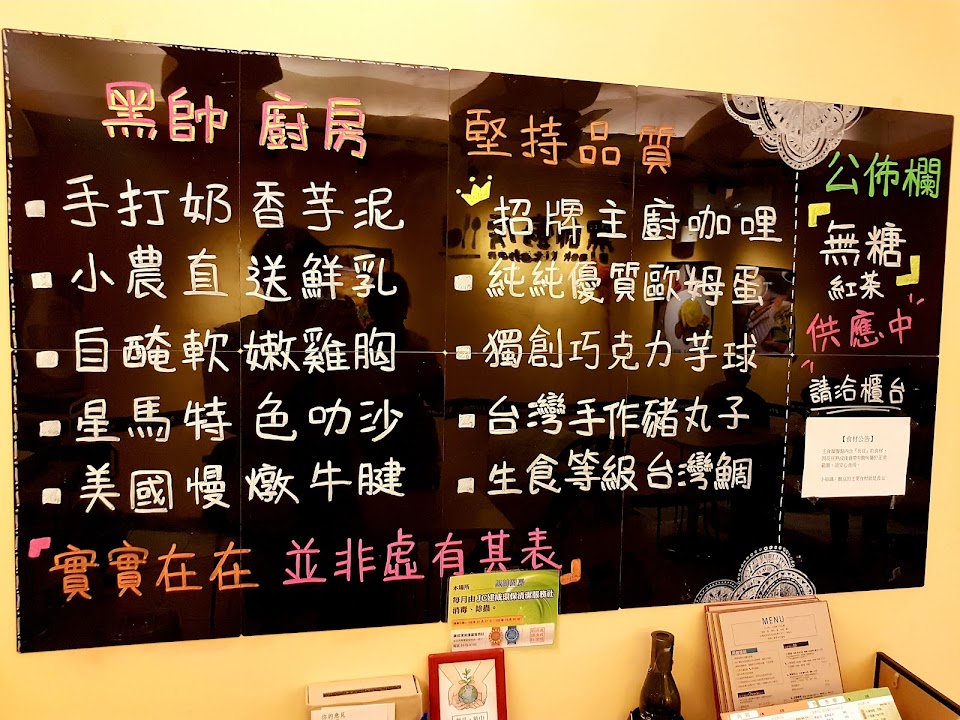 黑帥廚房
手打奶香芋泥
小農直送鮮乳
自醃軟嫩雞胸
星馬特色叻沙
美國慢燉牛腱
堅持品質
招牌主廚咖哩
純純優質歐姆蛋
獨創巧克力芋球
台灣手作豬丸子
生食等級台灣鯛
「實實在在 並非虛有其表」
公佈欄
「無糖」
紅茶
供應中
請洽櫃台
【食材公告】
本場所
每月由JC建成環保清潔服務社
消毒、除蟲。
MENU